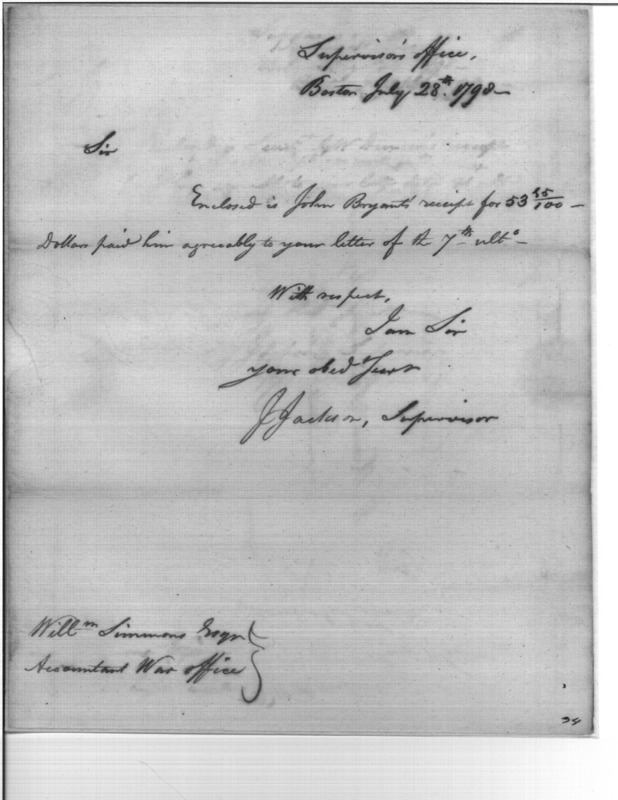 Supervisor's office,
Boston July 28th. 1798—
Sir
Enclosed is John Bryant's receipt for 53 55/100 —
Dollars paid him agreeably to your letter of the 7th ulto —
With respect,
I am Sir
your obedt Servt
J Jackson, Supervisor
Willm Simmons Esqr
Accountant War office